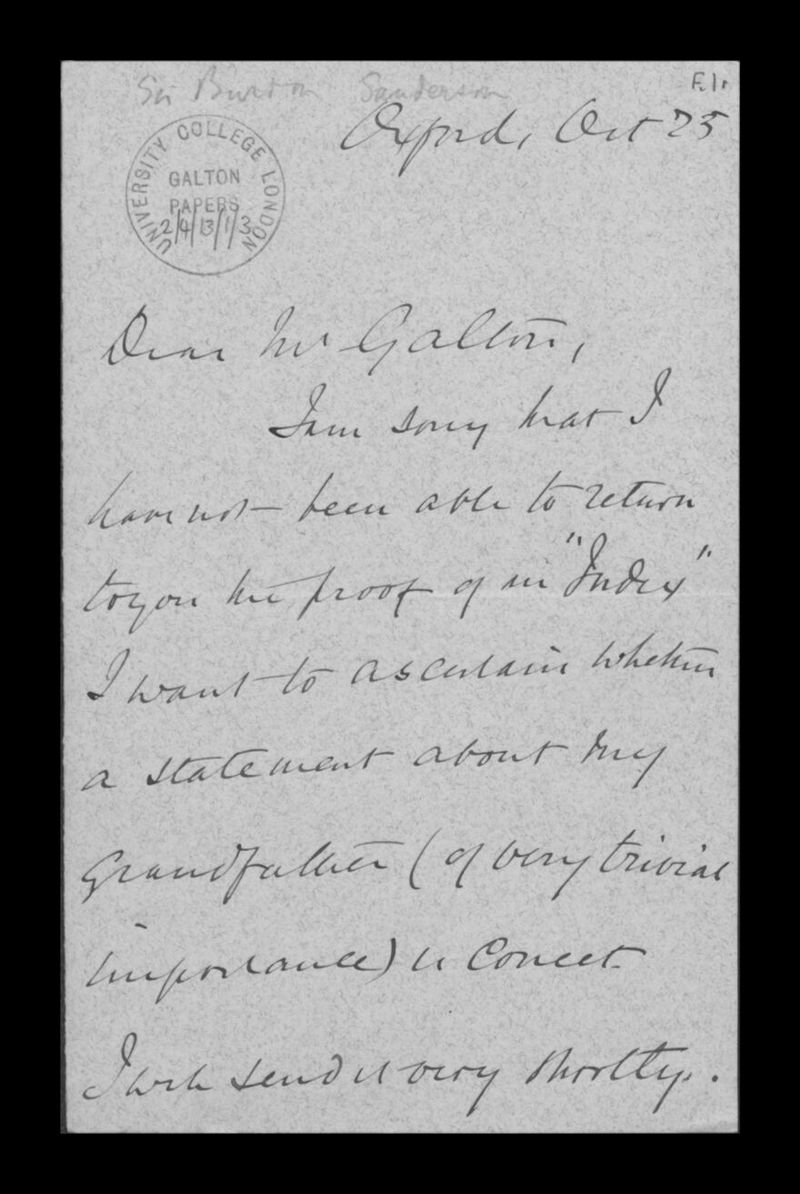 Sir Burdon Sanderson
F.1r
Oxford, Oct 25
UNIVERSITY COLLEGE LONDON
GALTON
PAPERS
2/4/13/1/3
Dear Mr Galton,
I am sorry that I
have not been able to return
to you the proof of my "Index"
I want to ascertain whether
a statement about my
grandfather (of very trivial
importance) is correct.
I will send it very shortly.